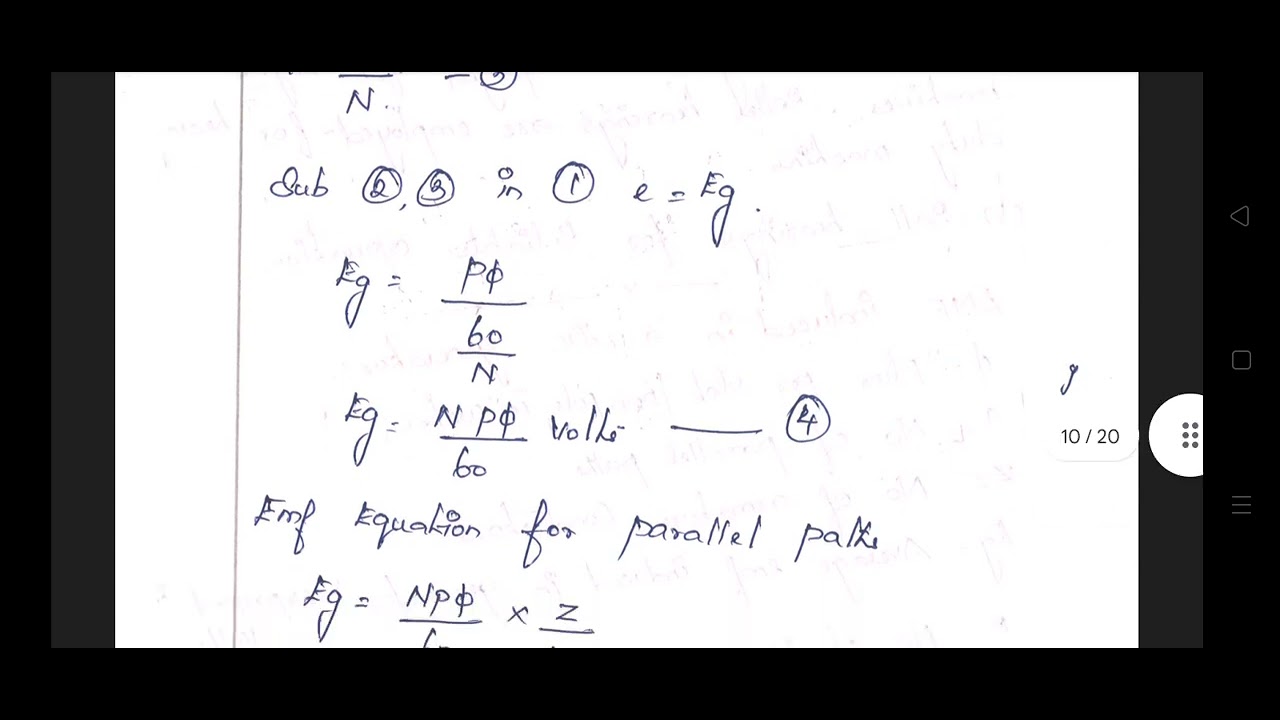 N.
Sub ②, ③ in ① e = Eg.
Eg = Pφ
60
N
Eg = N Pφ volts — ④
60
Emf Equation for parallel paths
Eg = NPφ × Z
10 / 20